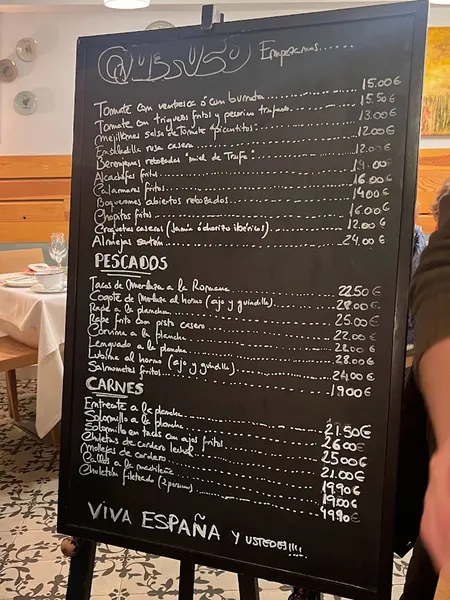 Empezamos......
Tomate con ventresca ó con burrata .......... 15.00€
Tomate con trigueros fritos y pecorino trufado .......... 15.50€
Mejillones salsa de tomate "picantitos" .......... 13.00€
Ensaladilla rusa casera .......... 12.00€
Berenjenas rebozadas "miel de Trufa" .......... 12.00€
Alcachofas fritas .......... 19.00€
Calamares fritos .......... 16.00€
Boquerones abiertos rebozados .......... 14.00€
Chopitos fritos .......... 16.00€
Croquetas caseras (jamón ó chorizo ibéricos) .......... 12.00€
Almejas sartén .......... 24.00€
PESCADOS
Tacos de Merluza a la Romana .......... 22.50€
Cogote de Merluza al horno (ajo y guindilla) .......... 28.00€
Rape a la plancha .......... 25.00€
Rape frito con pisto casero .......... 22.00€
Corvina a la plancha ..........
Lenguado a la plancha .......... 28.00€
Lubina al horno (ajo y guindilla) .......... 24.00€
Salmonetes fritos .......... 19.00€
CARNES
Entrecote a la plancha .......... 21.50€
Solomillo a la plancha .......... 26.00€
Solomillo en tacos con ajos fritos .......... 25.00€
Chuletas de cordero lechal .......... 21.00€
Mollejas de cordero .......... 19.90€
Callos a la madrileña .......... 19.00€
Chuletón fileteado (2 personas) .......... 49.90€
VIVA ESPAÑA Y USTEDES!!!!